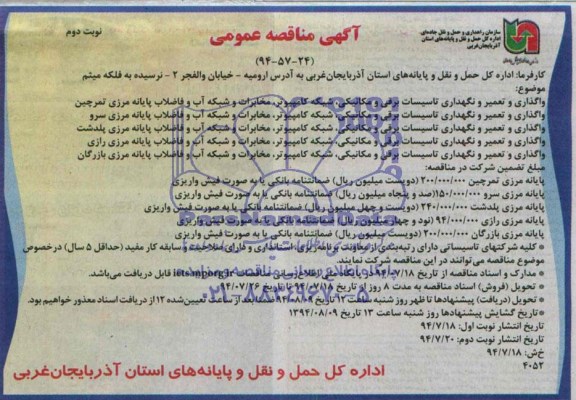 سازمان راهداری و حمل و نقل جاده‌ای
اداره کل حمل و نقل و پایانه‌های استان
آذربایجان‌غربی
آگهی مناقصه عمومی
نوبت دوم
(۹۴-۵۷-۲۴)
کارفرما: اداره کل حمل و نقل و پایانه‌های استان آذربایجان‌غربی به آدرس ارومیه - خیابان والفجر ۲ - نرسیده به فلکه میثم
موضوع:
واگذاری و تعمیر و نگهداری تاسیسات برقی و مکانیکی، شبکه کامپیوتر، مخابرات و شبکه آب و فاضلاب پایانه مرزی تمرچین
واگذاری و تعمیر و نگهداری تاسیسات برقی و مکانیکی، شبکه کامپیوتر، مخابرات و شبکه آب و فاضلاب پایانه مرزی سرو
واگذاری و تعمیر و نگهداری تاسیسات برقی و مکانیکی، شبکه کامپیوتر، مخابرات و شبکه آب و فاضلاب پایانه مرزی پلدشت
واگذاری و تعمیر و نگهداری تاسیسات برقی و مکانیکی، شبکه کامپیوتر، مخابرات و شبکه آب و فاضلاب پایانه مرزی رازی
واگذاری و تعمیر و نگهداری تاسیسات برقی و مکانیکی، شبکه کامپیوتر، مخابرات و شبکه آب و فاضلاب پایانه مرزی بازرگان
مبلغ تضمین شرکت در مناقصه:
پایانه مرزی تمرچین ۲۰۰/۰۰۰/۰۰۰ (دویست میلیون ریال) ضمانتنامه بانکی یا به صورت فیش واریزی
پایانه مرزی سرو ۱۵۰/۰۰۰/۰۰۰ (صد و پنجاه میلیون ریال) ضمانتنامه بانکی یا به صورت فیش واریزی
پایانه مرزی پلدشت ۲۴۰/۰۰۰/۰۰۰ (دویست و چهل میلیون ریال) ضمانتنامه بانکی یا به صورت فیش واریزی
پایانه مرزی رازی ۹۴/۰۰۰/۰۰۰ (نود و چهار میلیون ریال) ضمانتنامه بانکی یا به صورت فیش واریزی
پایانه مرزی بازرگان ۲۰۰/۰۰۰/۰۰۰ (دویست میلیون ریال) ضمانتنامه بانکی یا به صورت فیش واریزی
* کلیه شرکتهای تاسیساتی دارای رتبه‌بندی از معاونت برنامه‌ریزی استانداری و دارای صلاحیت و سابقه کار مفید (حداقل ۵ سال) درخصوص
موضوع مناقصه می‌توانند در این مناقصه شرکت نمایند.
* مدارک و اسناد مناقصه از تاریخ ۹۴/۰۷/۱۸ در پایگاه ملی اطلاع‌رسانی مناقصات iets.mporg.ir قابل دریافت می‌باشد.
* تحویل (فروش) اسناد مناقصه به مدت ۸ روز از تاریخ ۹۴/۰۷/۱۸ تا تاریخ ۹۴/۰۷/۲۶
* تحویل (دریافت) پیشنهادها تا ظهر روز شنبه ساعت ۱۲ تاریخ ۹۴/۰۸/۰۹ بعد از ساعت تعیین‌شده ۱۲ از دریافت اسناد معذور خواهیم بود.
* تاریخ گشایش پیشنهادها روز شنبه ساعت ۱۳ تاریخ ۱۳۹۴/۰۸/۰۹
تاریخ انتشار نوبت اول: ۹۴/۷/۱۸
تاریخ انتشار نوبت دوم: ۹۴/۷/۲۰
خ‌ش: ۹۴/۷/۱۸
۴۰۵۲
اداره کل حمل و نقل و پایانه‌های استان آذربایجان‌غربی